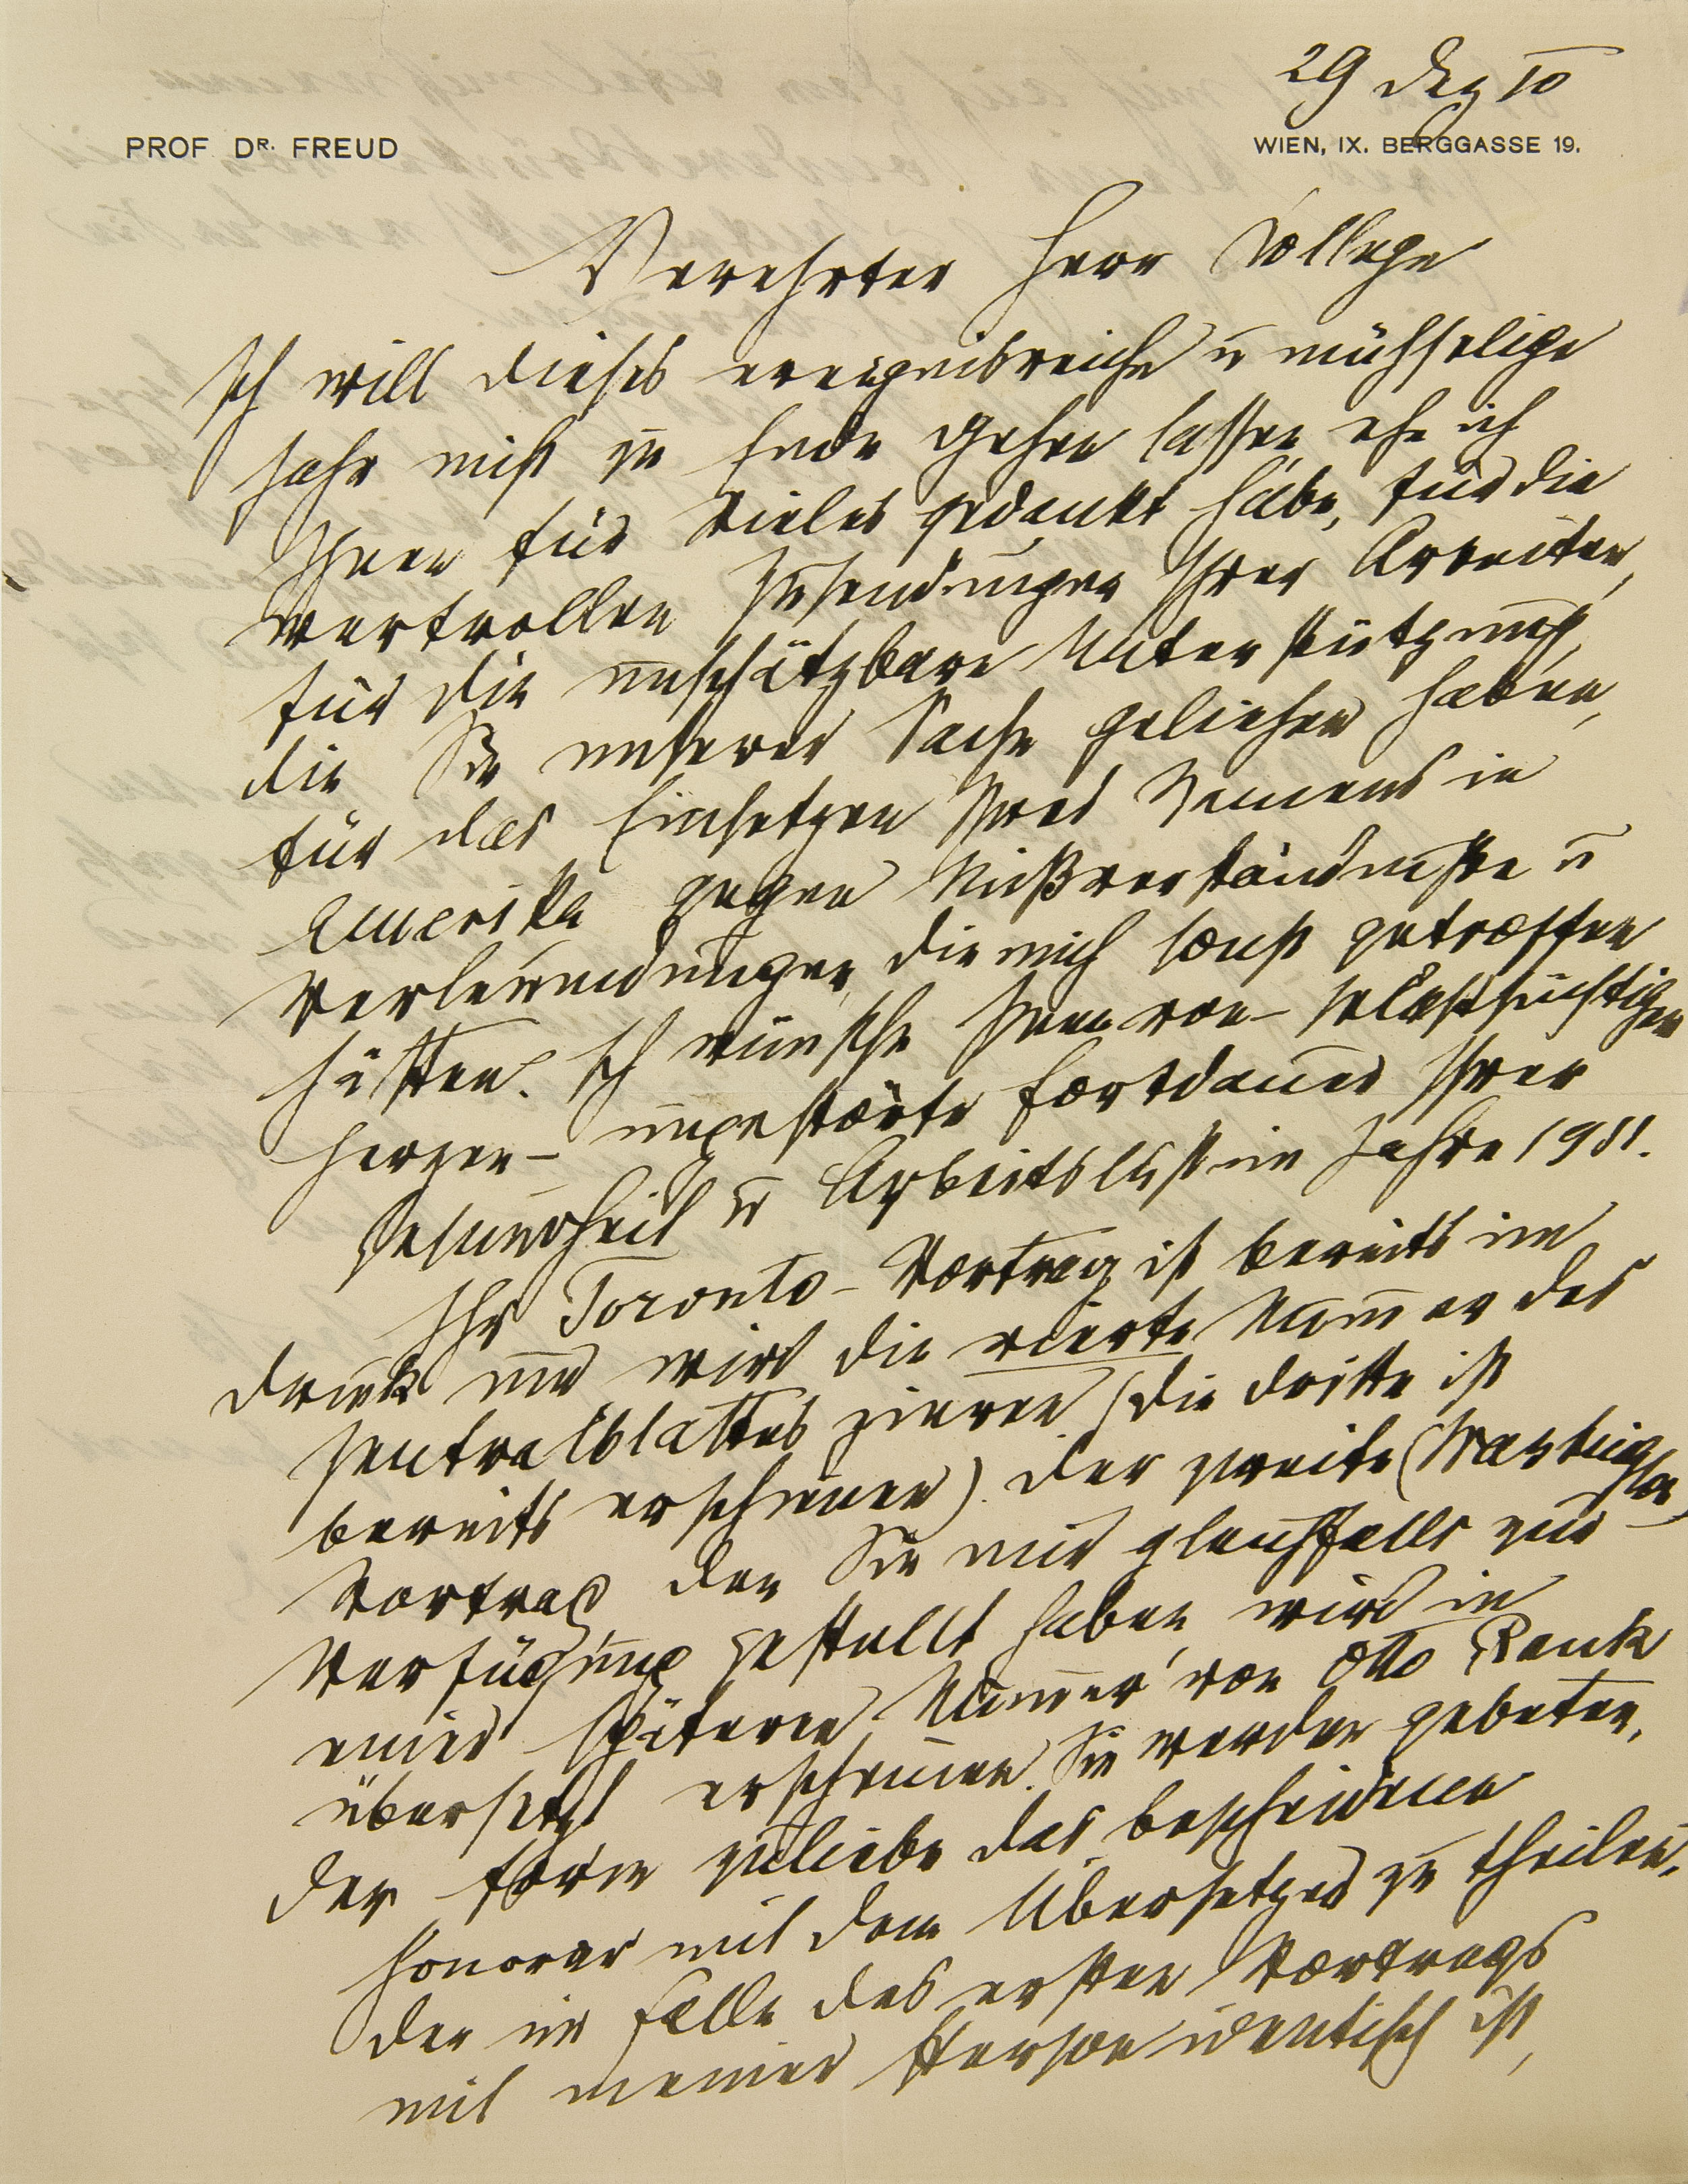 29 Dez 10
PROF. DR. FREUD
WIEN, IX. BERGGASSE 19.
Verehrter Herr College
Ich will dieses ereignisreiche u mühselige
Jahr nicht zu Ende gehen lassen ehe ich
Ihnen für Vieles gedankt habe, für die
wertvollen Zusendungen Ihrer Arbeiten,
für die unschätzbare Unterstützung,
die Sie unserer Sache geliehen haben,
für das Einsetzen Ihres Namens in
Amerika gegen Mißverständnisse u
Verleumdungen, die mich sonst getroffen
hätten. Ich wünsche Ihnen von – selbstsüchtigem
Herzen – ungestörte Fortdauer Ihrer
Gesundheit u Arbeitslust im Jahre 1911.
Ihr Toronto-Vortrag ist bereits im
Druck und wird die vierte Num̄er des
Zentralblattes zieren (die dritte ist
bereits erschienen). Der zweite (Washington)
Vortrag den Sie mir gleichfalls zur
Verfügung gestellt haben, wird in
einer späteren Num̄er von Otto Rank
übersetzt erscheinen. Sie werden gebeten,
der Form zuliebe das bescheidene
Honorar mit dem Übersetzer zu theilen,
der im Falle des ersten Vortrags
mit meiner Person identisch ist,